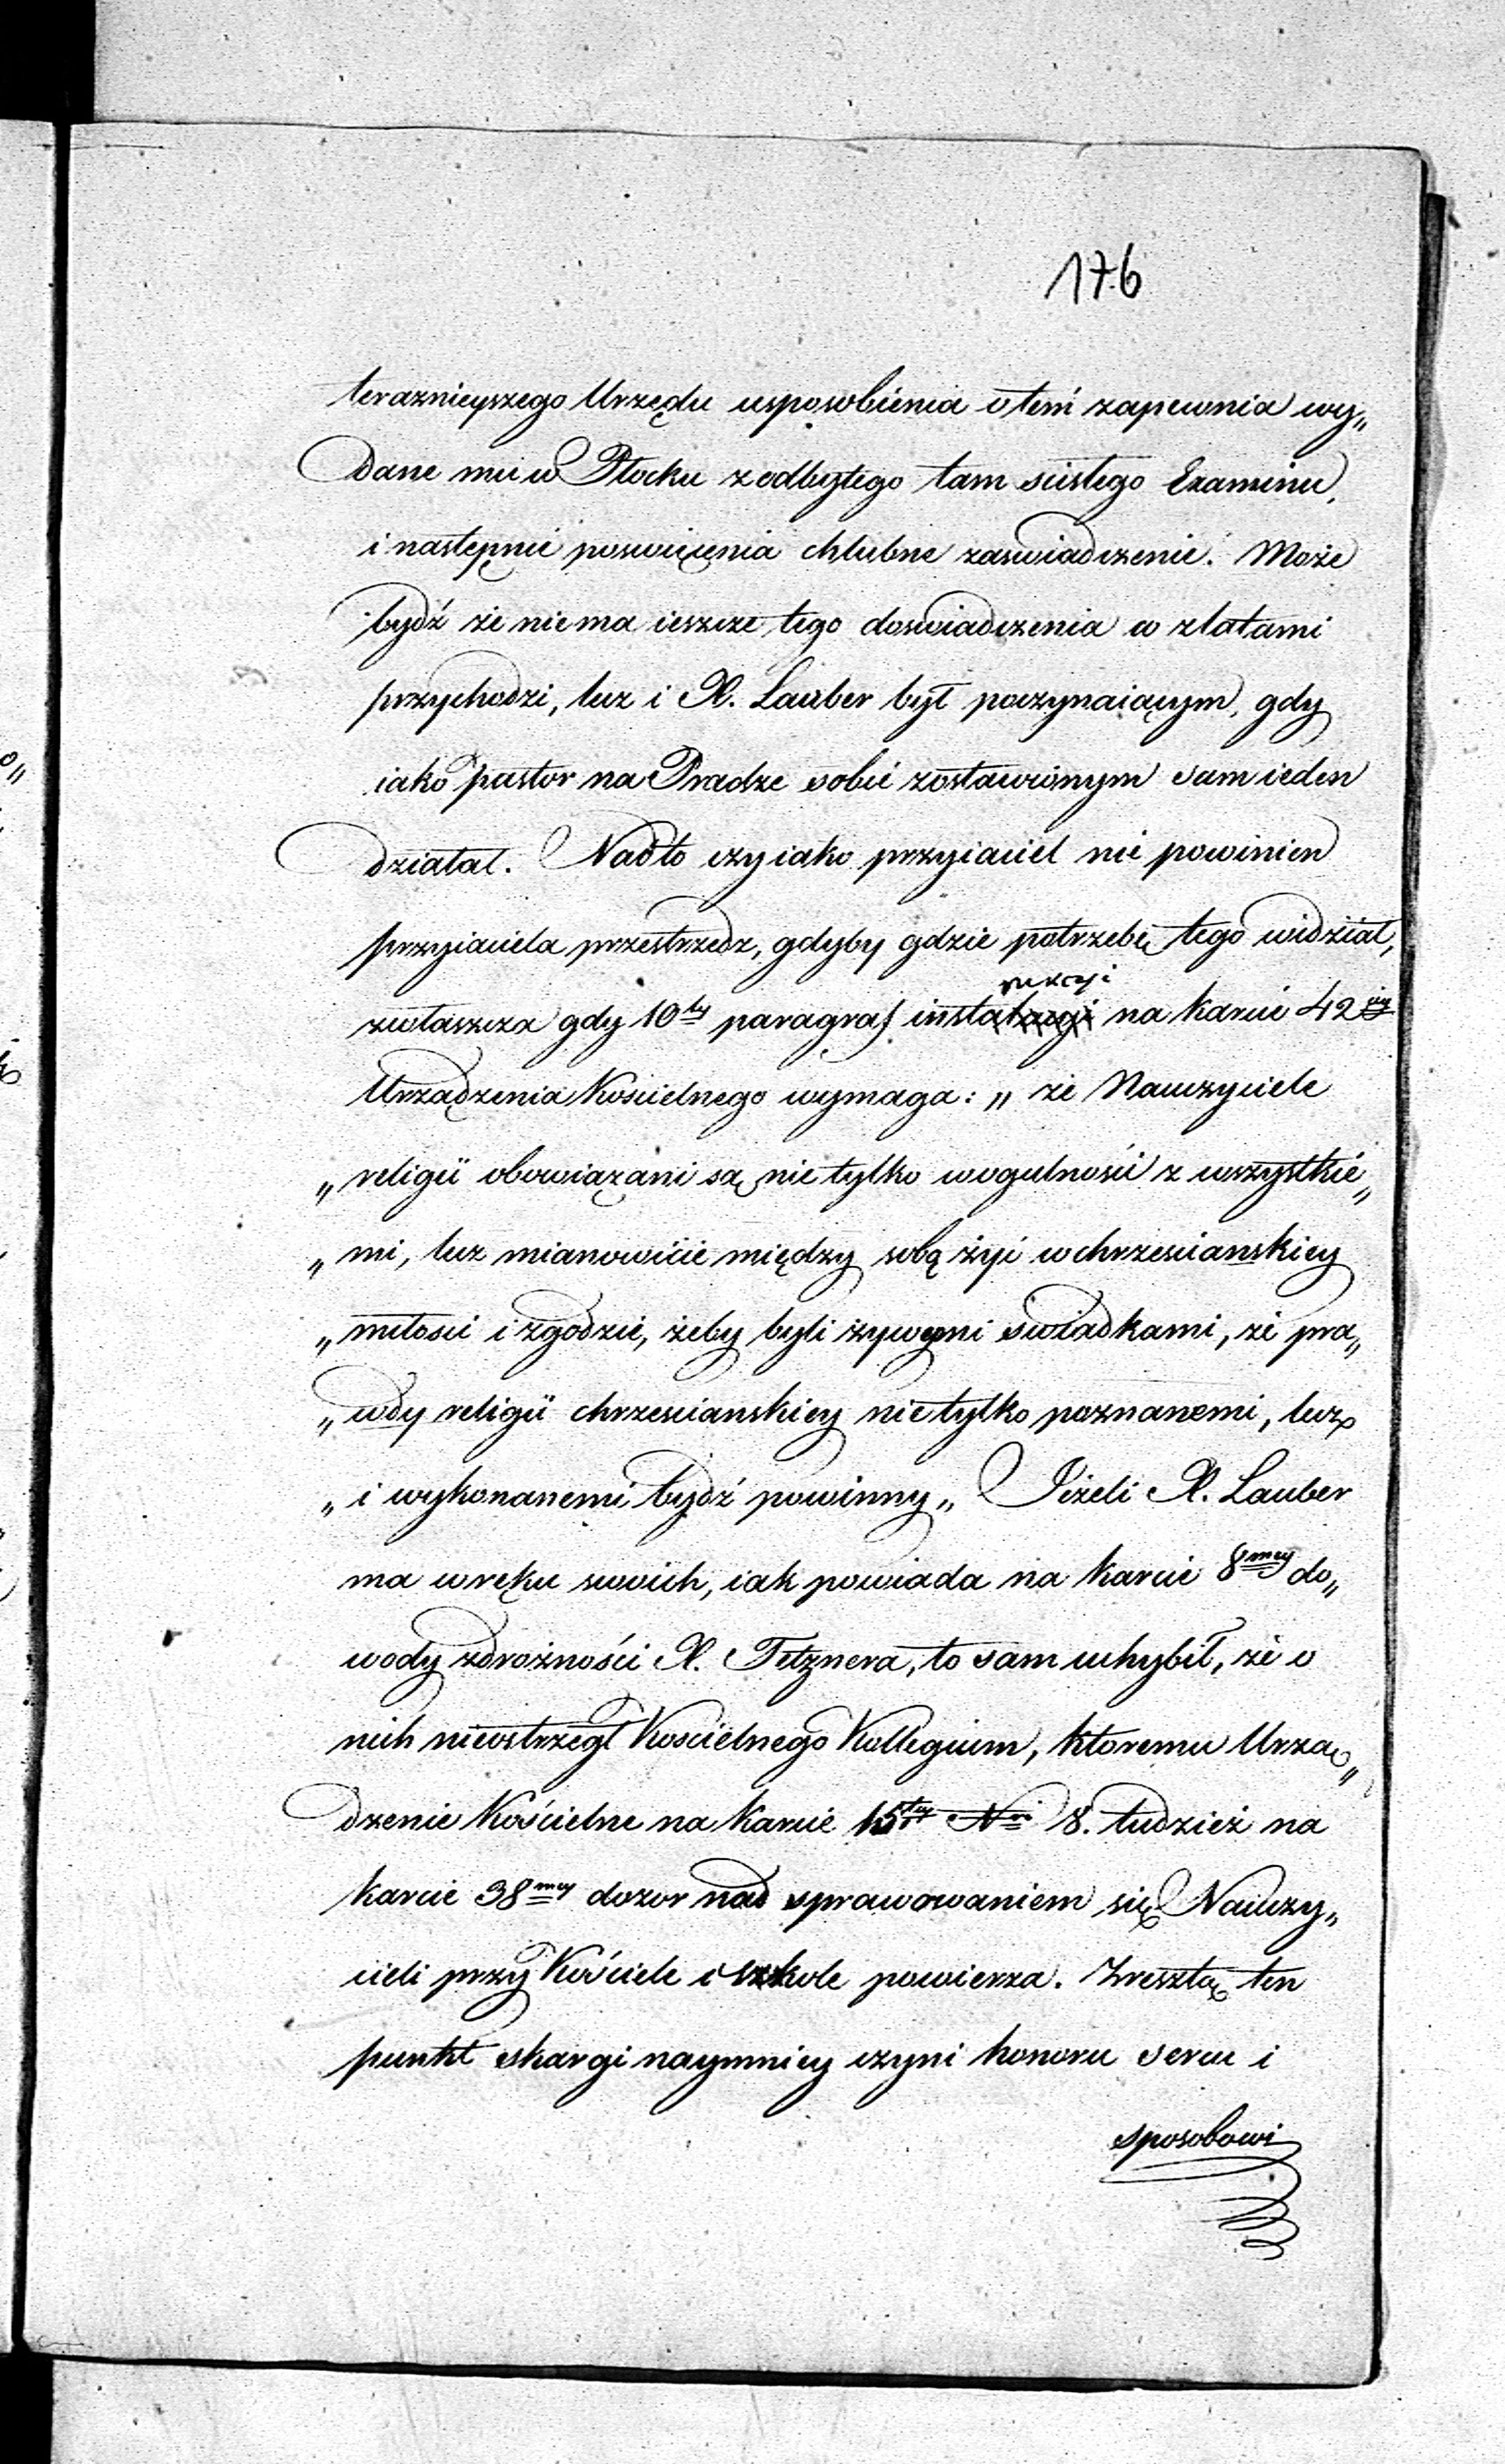 176
teraznieyszego Urzędu usposobienia o tém zapewnia wy„
dane mu w Płocku z odbytego tam scisłego Examinu,
i następnie poswięcenia chlubne zaswiadczenie. Może
bydź że nie ma ieszcze tego doswiadczenia co z latami
przychodzi, lecz i X. Lauber był poczynaiącym, gdy
iako pastor na Pradze sobie zostawionym sam ieden
działał. Nadto czy iako przyiaciel nie powinien
przyiaciela przestrzedz, gdyby gdzie potrzebę tego widział,
rukcyi
zwłaszcza gdy 10ty paragraf instalacyi na karcie 42giey
Urządzenia Kościelnego wymaga: „ że Nauczyciele
„ religii obowiązani są nie tylko w ogulności z wszystkie„
„ mi, lecz mianowicie między sobą żyć w chrzescianskiey
„ miłosci i zgodzie, żeby byli żywymi swiadkami, że pra„
„ wdy religii chrzescianskiey nie tylko poznanemi, lecz
„ i wykonanemi bydź powinny „ Jeżeli X. Lauber
ma w ręku swoich, iak powiada na karcie 8mey do„
wody zdrożności X. Tetznera, to sam uchybił, że o
nich nieostrzegł Koscielnego Kollegium, ktoremu Urzą„
dzenie Kościelne na karcie 15tey Nri 8. tudzież na
karcie 38mey dozor nad sprawowaniem się Nauczy„
cieli przy Kościele i szkole powierza. Zresztą ten
punkt skargi naymniey czyni honoru sercu i
sposobowi